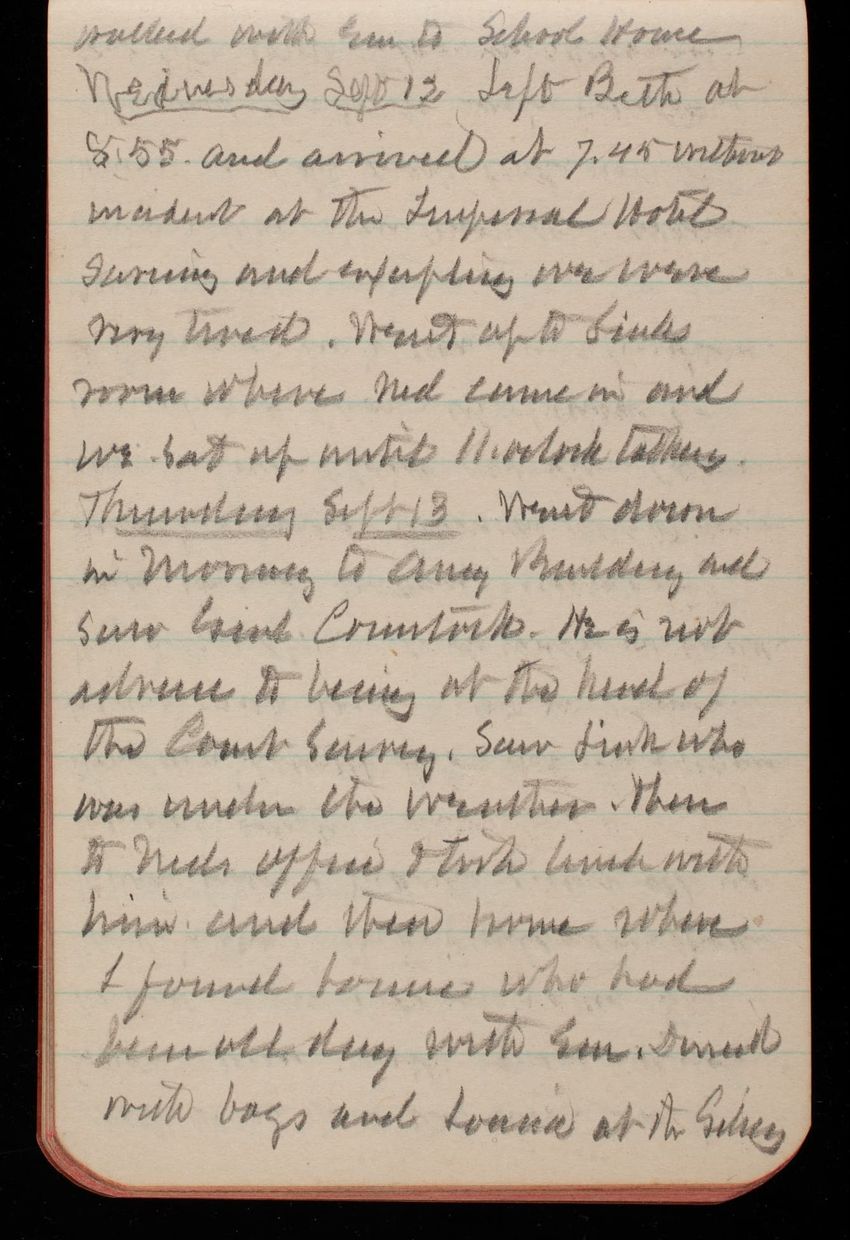 walled with Em to School House
Wednesday Sept 12 Left Beth at
8.55 and arrived at 7.45 without
incident at the Imperial Hotel
and we were
very tired. Went up to Links
room where Ned came in and
we sat up until 11.oclock talking.
Thursday Sept 13. Went down
in Morning to Army Building and
saw Genl Comstock. He is not
adverse to being at the head of
the Court Survey. Saw Link who
was under the weather. Then
to Neds office & took lunch with
him and then home where
I found Louise who had
been all day with Em. Dined
with boys and Louise at the Gilsey